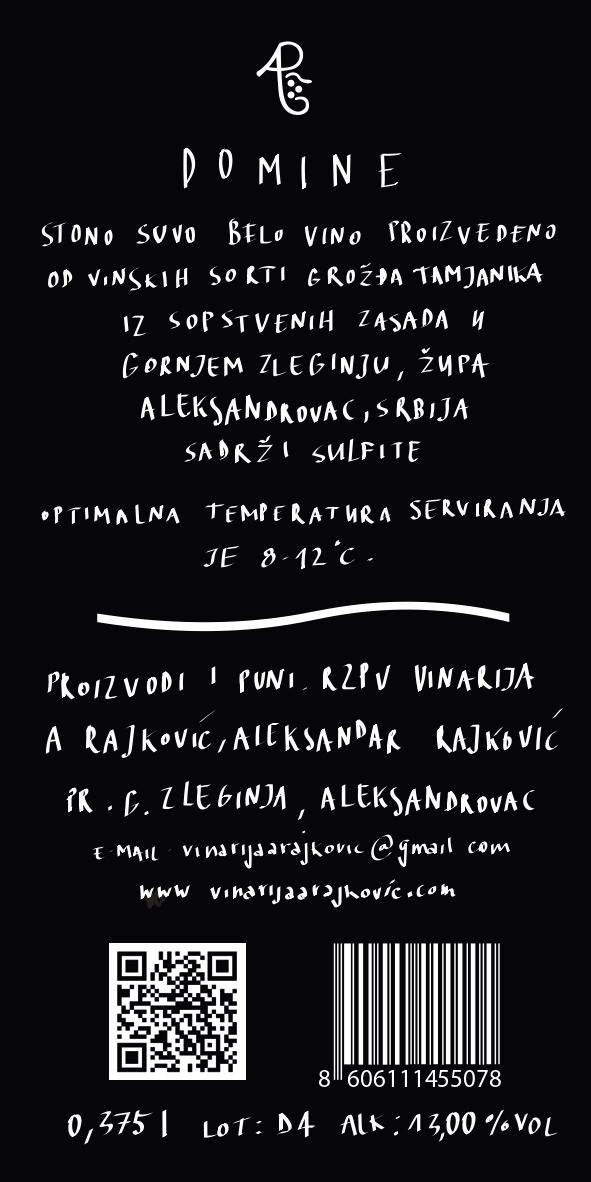 DOMINE
STONO SUVO BELO VINO PROIZVEDENO
OD VINSKIH SORTI GROŽĐA TAMJANIKA
IZ SOPSTVENIH ZASADA U
GORNJEM ZLEGINJU, ŽUPA
ALEKSANDROVAC, SRBIJA
SADRŽI SULFITE
OPTIMALNA TEMPERATURA SERVIRANJA
JE 8-12°C.
PROIZVODI I PUNI. RZPV VINARIJA
A RAJKOVIĆ, ALEKSANDAR RAJKOVIĆ
PR. G. ZLEGINJA, ALEKSANDROVAC
E-MAIL vinarijaarajkovic@gmail com
www vinarijaarajkovíc.com
8 606111455078
0,375 l LOT: D4 Alk: 13,00 %VOL